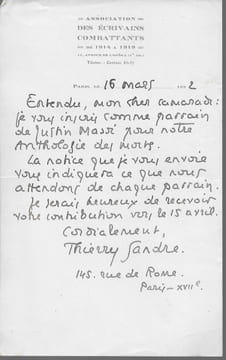 ASSOCIATION
DES ÉCRIVAINS
COMBATTANTS
DE 1914 A 1919
PARIS, LE 16 mars 2
Entendu, mon cher camarade:
je vous inscris comme parrain
de Justin Massé pour notre
Anthologie des morts.
La notice que je vous envoie
vous indiquera ce que nous
attendons de chaque parrain.
Je serais heureux de recevoir
votre contribution vers le 15 avril.
Cordialement,
Thierry Sandre.
145. rue de Rome.
Paris-XVIIe.